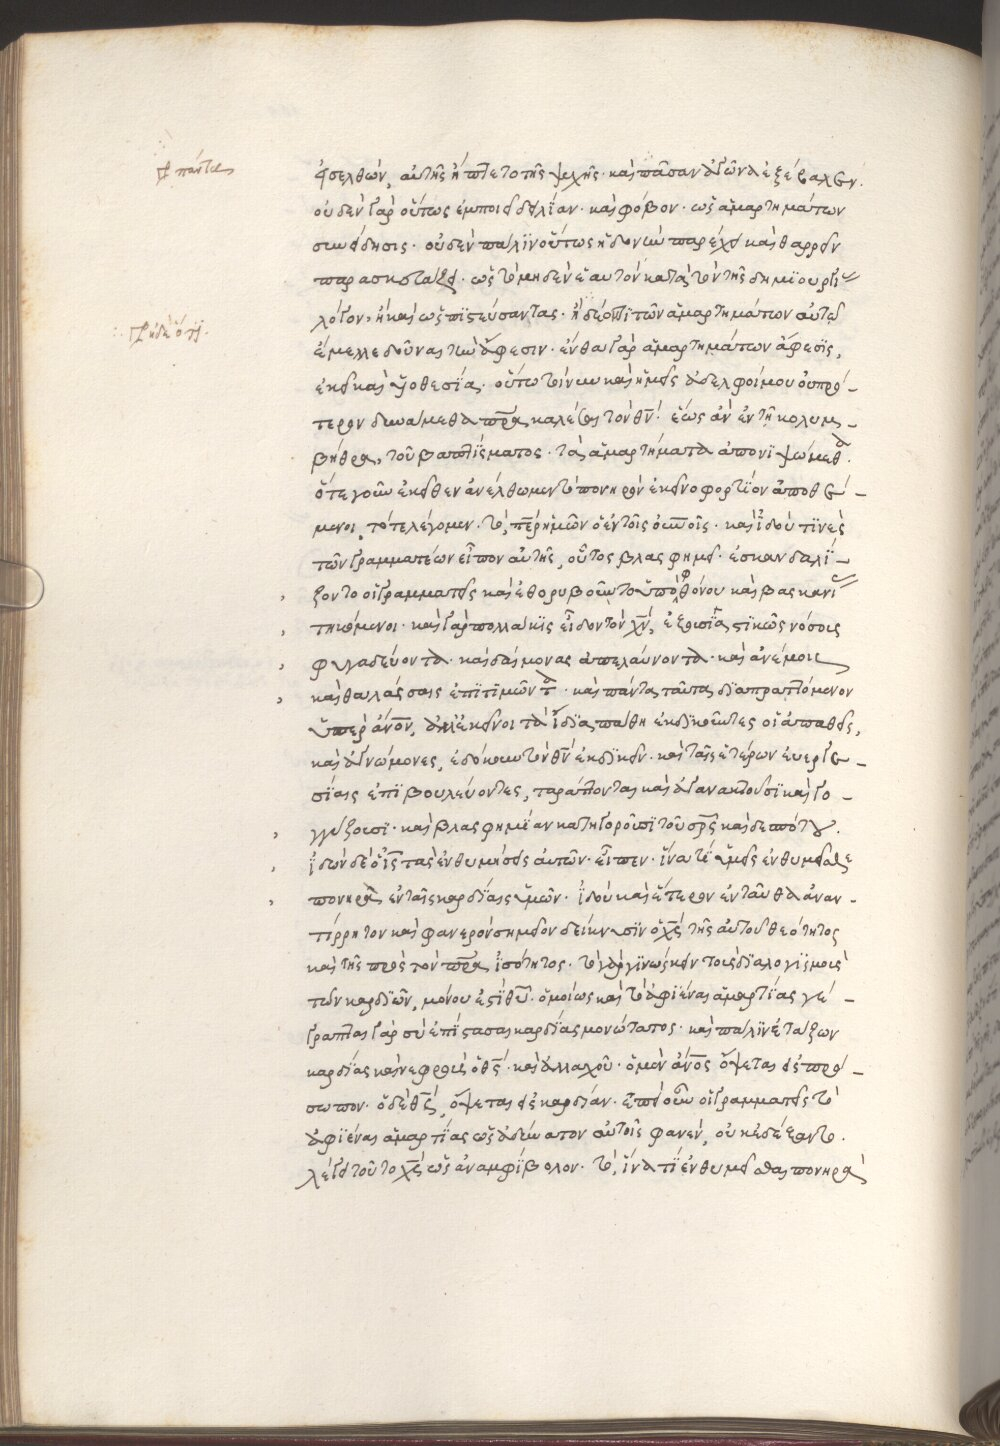 πάντα
εἰσελθὼν, αὐτῆς ἥπτετο τῆς ψυχῆς· καὶ πᾶσαν ἀγωνίαν ἐξέβαλεν.
οὐδὲν γὰρ οὕτως ἐμποιεῖ δειλίαν· καὶ φόβον· ὡς ἁμαρτημάτων
συνείδησις· οὐδὲν πάλιν οὕτως ἡδονὴν παρέχει καὶ θαρρεῖν
παρασκευάζει· ὡς τὸ μηδὲν ἑαυτὸν κατὰ τὸν τῆς δημϊουργί
λόγον, ἢ καὶ ὡς πϊστεύσαντας· ἤδει ὅτι τῶν ἁμαρτημάτων αὐτῶ
ἔμελλε δοῦναι τὴν ἄφεσιν· ἔνθα γὰρ ἁμαρτημάτων ἄφεσϊς,
ἐκεῖ καὶ υἱοθεσία· οὕτω τοίνυν καὶ ἡμεῖς ἀδελφοί μου οὐ πρό-
τερον δυνάμεθα πρα καλέσαι τὸν θν· ἕως ἂν ἐν τῆ κολυμ-
βήθρα, τοῦ βαπτίσματος· τὰ ἁμαρτήματα ἀπονιψώμεθα.
ὅτε γοῦν ἐκεῖθεν ἀνέλθωμεν τὸ πονηρὸν ἐκεῖνο φορτίον ἀποθέ-
μενοι, τότε λέγομεν· τὸ, περ ἡμῶν ὁ ἐν τοῖς οὐνοῖς· καὶ ἰδού τινὲς
τῶν γραμματέων εἶπον αὐτῆς, οὗτος βλασφημεῖ· ἐσκανδαλί-
ζοντο οἱ γραμματεῖς καὶ ἐθορυβοῦντο ὑπὸ φθόνου καὶ βασκανί
τηκόμενοι· καὶ γὰρ πολλάκις εἶδον τὸν χν, ἐξουσιαστικῶς νόσοις
φυγαδεύοντα· καὶ δαίμονας ἀπελαύνοντα· καὶ ἀνέμοις
καὶ θαλάσσαις ἐπϊτϊμῶντα· καὶ πάντα ταῦτα διαπραττόμενον
ὑπὲρ ἀνων, ἀλλ' ἐκεῖνοι τὰ ἴδια πάθη ἐκδικοῦντες οἱ ἀπαθεῖς,
καὶ ἀγνώμονες, ἐδόκουν τὸν θν ἐκδικεῖν· καὶ ταῖς ἑτέρων εὐεργε-
σίαις ἐπϊβουλεύοντες, ταράττονται καὶ ἀγανακτοῦσι καὶ γο-
γγύζουσι· καὶ βλασφημίαν κατηγοροῦσι τοῦ σρς καὶ δεσπότου.
ἰδὼν δὲ ὁ ις τὰς ἐνθυμήσεις αὐτῶν· εἶπεν· ἵνα τί ὑμεῖς ἐνθυμεῖσθε
πονηρὰ ἐν ταῖς καρδίαις ὑμῶν· ἰδού καὶ ἕτερον ἐνταῦθα ἀναν-
τίρρητον καὶ φανερὸν σημεῖον δείκνυσιν ὁ χς τῆς αὐτοῦ θεότητος
καὶ τῆς πρὸς τὸν πρα ἰσότητος· τὸ γὰρ γινώσκειν τοὺς διαλογισμοὺς
τῶν καρδιῶν, μόνου ἐστὶ θυ· ὁμοίως καὶ τὸ ἀφιέναι ἁμαρτίας γέ-
γραπται γὰρ σὺ ἐπίστασαι καρδίας μονώτατος· καὶ πάλιν ἐτάζων
καρδίας καὶ νεφροὺς ὁ θς· καὶ ἀλλαχοῦ· ὁ μὲν ἀνος ὄψεται εἰς πρό-
σωπον· ὁ δὲ θς, ὄψεται εἰς καρδίαν· ἐπεὶ οὖν οἱ γραμματεῖς τὸ
ἀφιέναι ἁμαρτίας ὡς ἀδύνατον αὐτοῖς φανὲν, οὐκ ἐδέξαντο.
λέγει τοῦτο χς ὡς ἀναμφίβολον· τὸ, ἵνα τί ἐνθυμεῖσθαι πονηρὰ